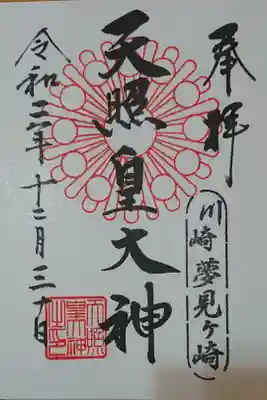 奉拝
(川崎夢見ヶ崎)
天照皇大神
令和二年十二月三十日